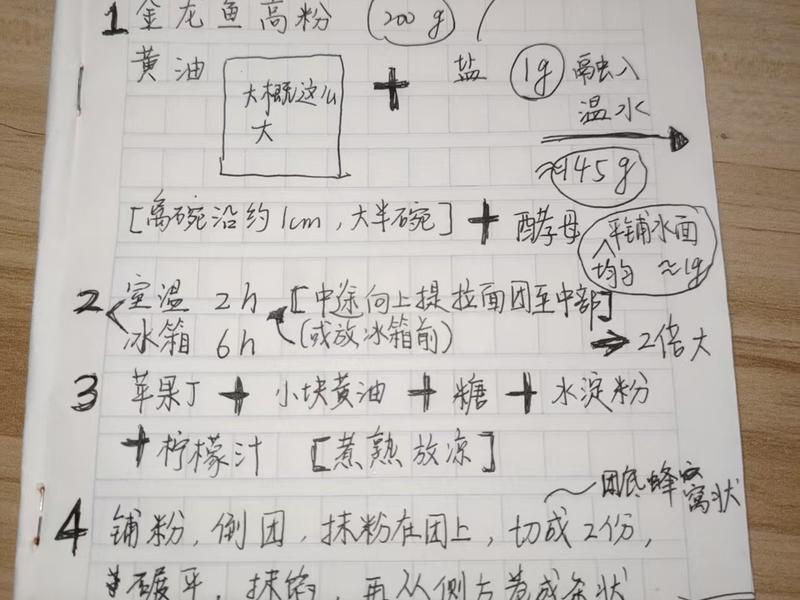 1 金龙鱼高粉 200g
黄油 大概这么大 + 盐 1g 融入温水
≈145g
[离碗沿约1cm,大半碗] + 酵母 平铺水面 均匀 ≈1g
2 室温 2h [中途向上提拉面团至中部]
冰箱 6h (或放冰箱前) → 2倍大
3 苹果丁 + 小块黄油 + 糖 + 水淀粉
+ 柠檬汁 [煮熟放凉]
团底蜂窝状
4 铺粉,倒团,抹粉在团上,切成2份,
碾平,抹馅,再从侧方卷成条状